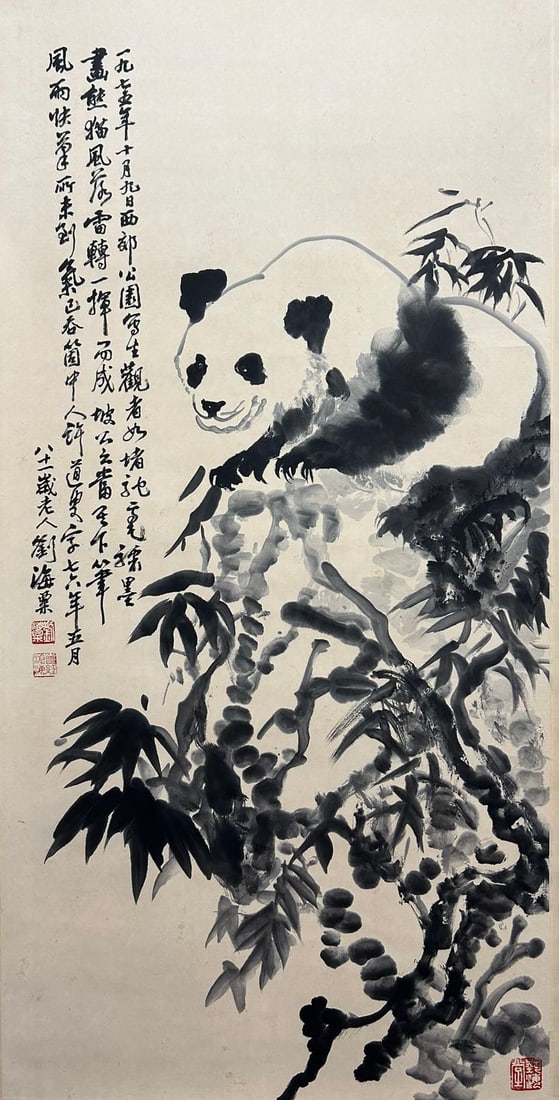 一九七五年十月九日西郊公園寫生觀者如堵純毫潑墨
畫熊猫風落雷轉一揮而成坡公云當其下筆
風雨快筆所未到氣已吞箇中人許道更字七六年五月
八十一歲老人劉海粟